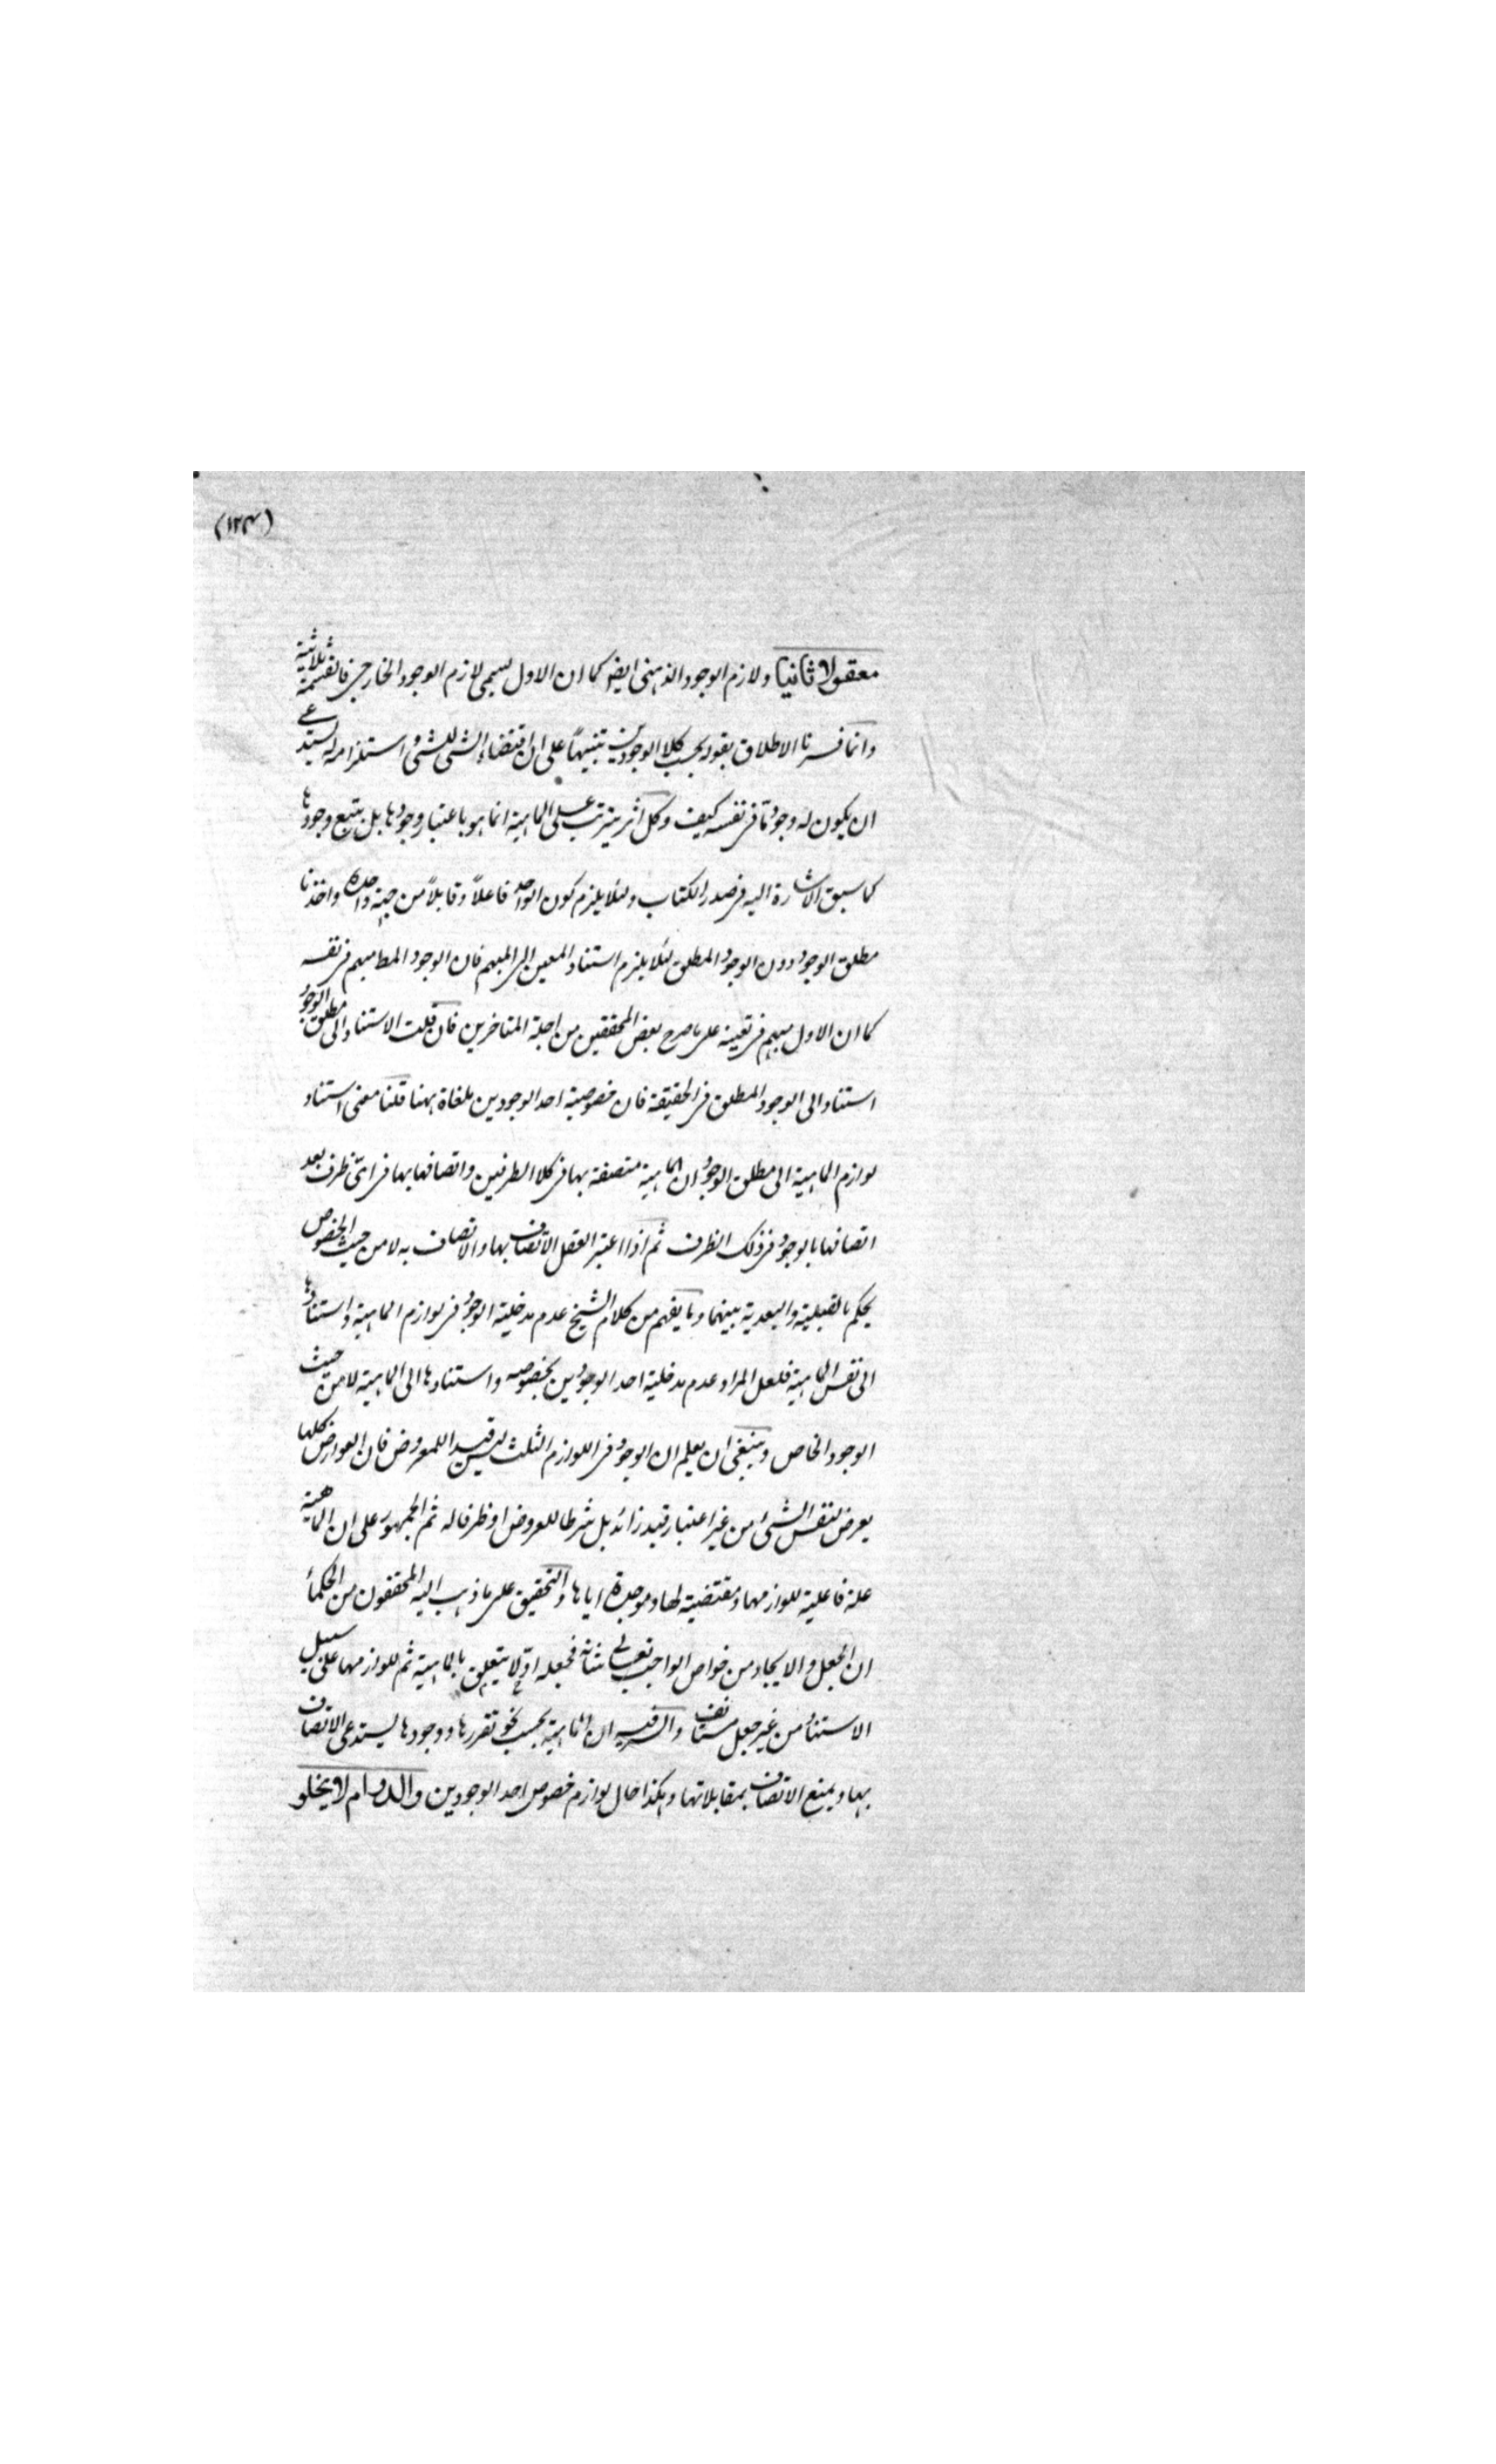 (١٢٣)
معقولا ثانيا ولازم الوجود الذهنى ايضا كما ان الاول يسمى لازم الوجود الخارجى فالقسمة ثلاثية
وانما فسرنا الاطلاق بقوله بحسب كلا الوجودين تنبيهاً على ان اقتضاء الشئ للشئ و استلزامه له يستدعى
ان يكون له وجود ما فى نفسه كيف وكل اثر يترتب على الماهية انما هو باعتبار وجودها بل يتبع وجودها
كما سبق الاشارة اليه فى صدر الكتاب ولئلا يلزم كون الواحد فاعلاً وقابلاً من جهة واحدة واخذنا
مطلق الوجود دون الوجود المطلق لئلا يلزم استناد المعين الى المبهم فان الوجود المط مبهم فى نفسه
كما ان الاول مبهم فى تعينه على ما صرح بعض المحققين من اجلة المتاخرين فان قلت الاستناد الى مطلق الوجود
استناد الى الوجود المطلق فى الحقيقة فان خصوصية احد الوجودين ملغاة ههنا قلنا معنى استناد
لوازم الماهية الى مطلق الوجود ان الماهية متصفة بها فى كلا الطرفين واتصافها بها فى اىّ ظرف بعد
اتصافها بالوجود فى ذلك الظرف ثم اذا اعتبر العقل الاتصاف بها والاتصاف به لا من حيث الخصوص
يحكم بالقبلية والبعدية بينهما وما يفهم من كلام الشيخ عدم مدخلية الوجود فى لوازم الماهية واستنادها
الى نفس الماهية فلعل المراد عدم مدخلية احد الوجودين بخصوصه واستنادها الى الماهية لا من حيث
الوجود الخاص وينبغى ان يعلم ان الوجود فى اللوازم الثلث ليس قيد اللمعروض فان العوارض كلها
يعرض لنفس الشئ من غير اعتبار قيد زائد بل شرطا للعروض او ظرفا له ثم الجمهور على ان الماهية
علة فاعلية للوازمها ومقتضية لها وموجدة اياها والتحقيق على ما ذهب اليه المحققون من الحكماء
ان الجعل والايجاد من خواص الواجب تعالى شانه فجعله اوّلا يتعلق بالماهية ثم للوازمها على سبيل
الاستتباع من غير جعل مستانف والسر فيه ان الماهية بحسب نحو تقررها ووجودها يستدعى الاتصاف
بها ويمنع الاتصاف بمقابلاتها وهكذا حال لوازم خصوص احد الوجودين والدوام لا يخلو